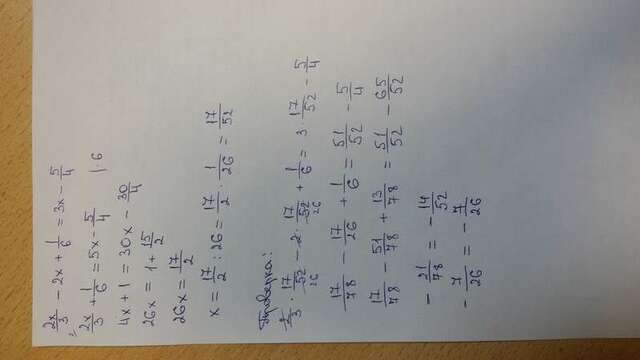 2x/3 - 2x + 1/6 = 3x - 5/4
2x/3 + 1/6 = 5x - 5/4 | · 6
4x + 1 = 30x - 30/4
26x = 1 + 15/2
26x = 17/2
x = 17/2 : 26 = 17/2 · 1/26 = 17/52
Проверка:
2/3 · 17/52 26 - 2 · 17/52 26 + 1/6 = 3 · 17/52 - 5/4
17/78 - 17/26 + 1/6 = 51/52 - 5/4
17/78 - 51/78 + 13/78 = 51/52 - 65/52
- 21/78 = - 14/52
- 7/26 = - 7/26